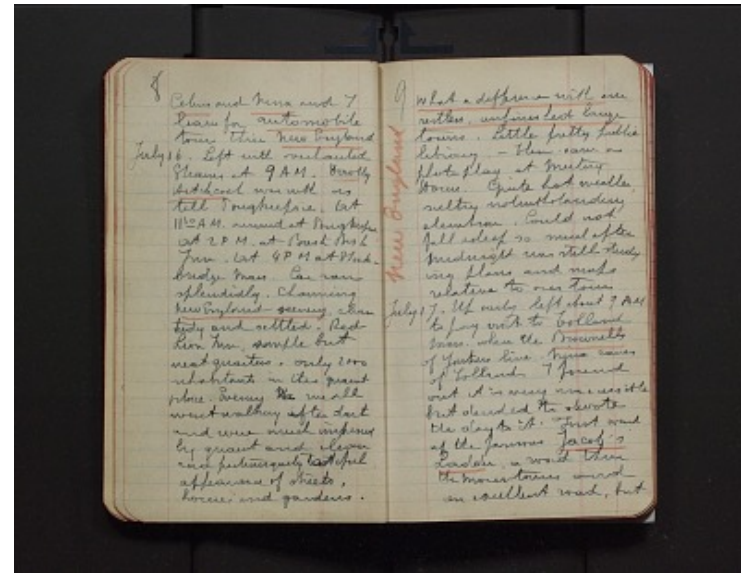 8
Celine and Nina and I
leave for automobile
tour thru New England
July 16. Left with overhauled
Stearns at 9 A.M. Dorothy
was with us
till Poughkeepsie. Left
11:30 A.M. arrived at Poughkeepsie
at 2 P.M. at Bash Bish
Inn. Left 4 P M at Stock-
bridge Mass. Car ran
splendidly. Charming
New England scenery, clean
tidy and settled. Red
Lion Inn, simple but
neat quarters. only 2000
inhabitants in this quaint
place. Evening we all
went walking after dark
and were much impressed
by quaint and clean
and picturesquely tasteful
appearance of streets,
houses and gardens.
9
New England
What a difference with our
restless, unfinished large
towns. Little pretty public
library. - Then saw a
photo play at Meeting
House. Quite hot weather,
sultry notwithstanding
elevation. Could not
fall asleep so much after
midnight was still study-
ing plans and maps
relative to our tour
July 17. Up early left about 9 AM
to pay visit to Tolland
Mass. where the Brownells
of Yonkers live. Nina raves
of Tolland. I found
out it is very inaccessible
but decided to devote
the day to it. First went
at the famous Jacob's
Ladder, a road thru
the mountains and
an excellent road, but